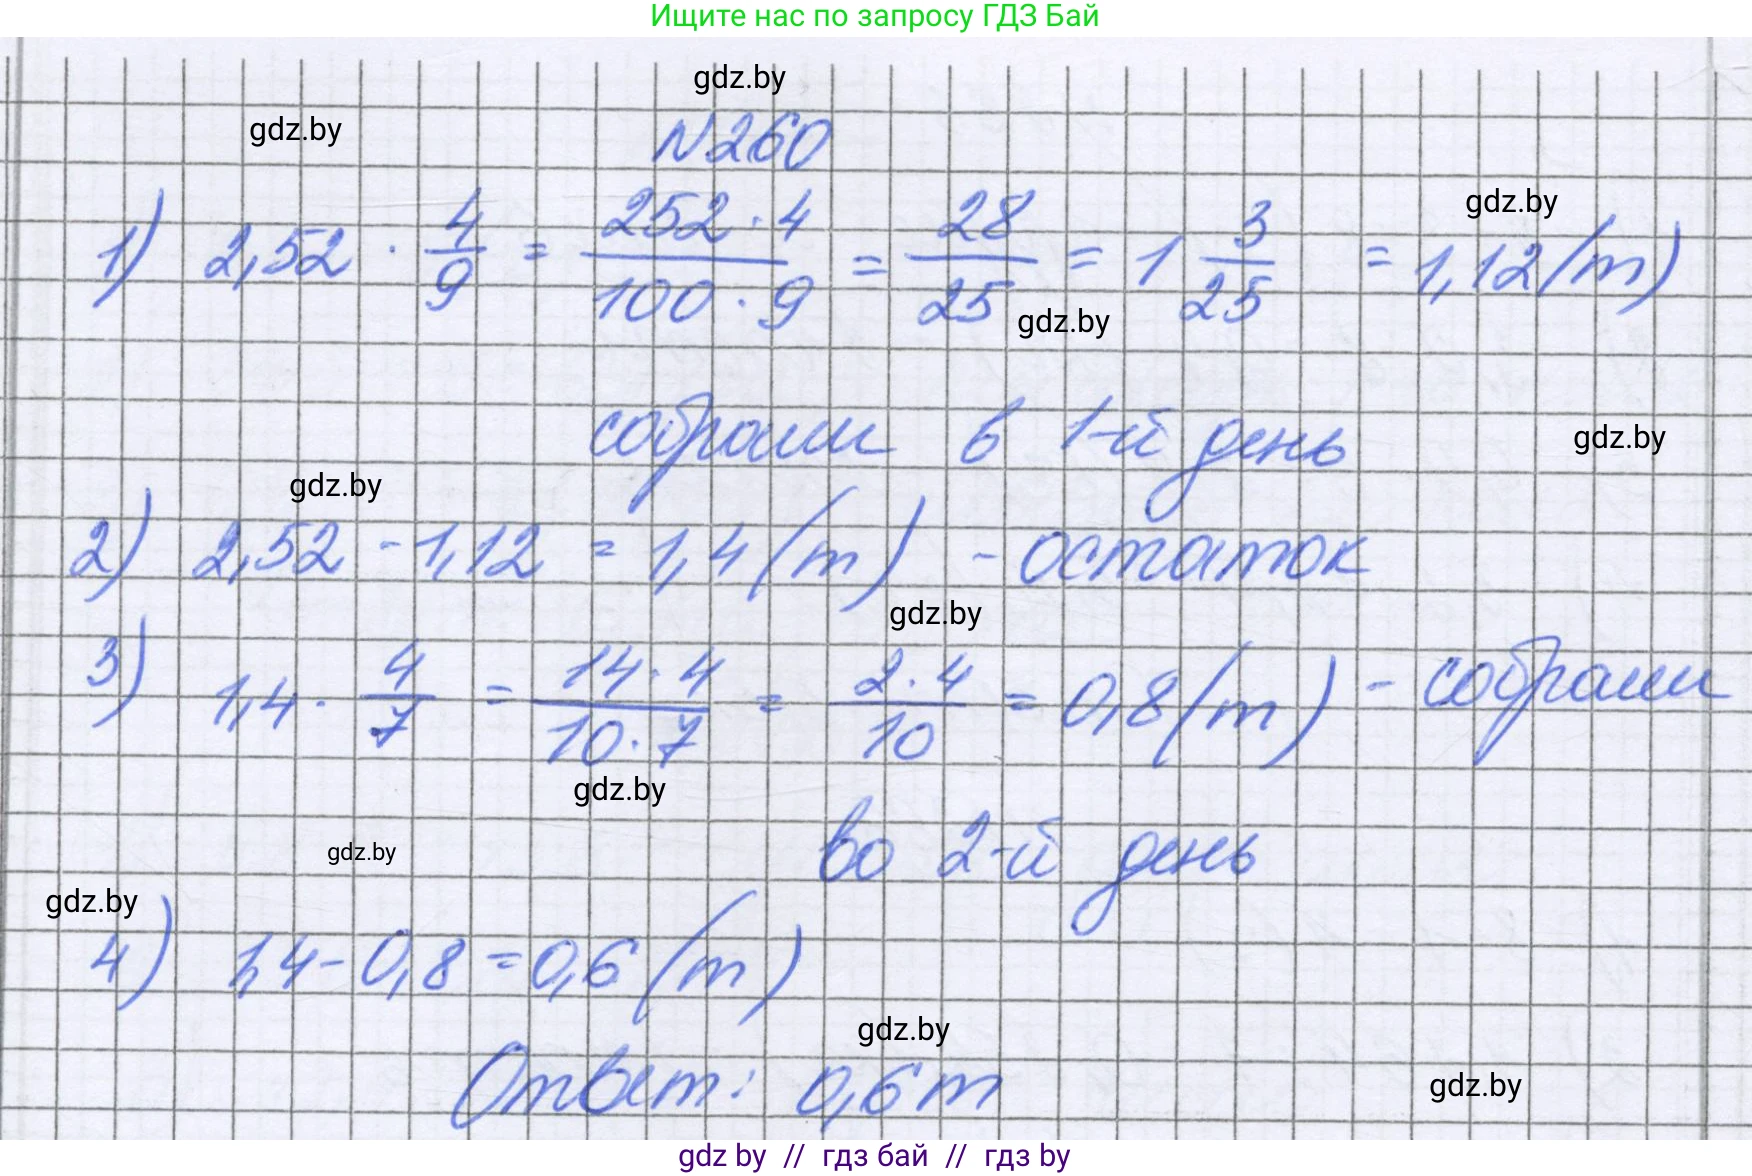 Ищите нас по запросу ГДЗ Бай
gdz.by
gdz.by
N260
gdz.by
1) 2,52 · 4/9 = 252 · 4/100 · 9 = 28/25 = 1 3/25 = 1,12 (т)
gdz.by
собрали в 1-й день
gdz.by
gdz.by
2) 2,52 - 1,12 = 1,4 (т) - остаток
gdz.by
3) 1,4 · 4/7 = 14 · 4/10 · 7 = 2 · 4/10 = 0,8 (т) - собрали
gdz.by
во 2-й день
gdz.by
gdz.by
4) 1,4 - 0,8 = 0,6 (т)
gdz.by
Ответ: 0,6 т
gdz.by
gdz by // гдз бай // гдз by